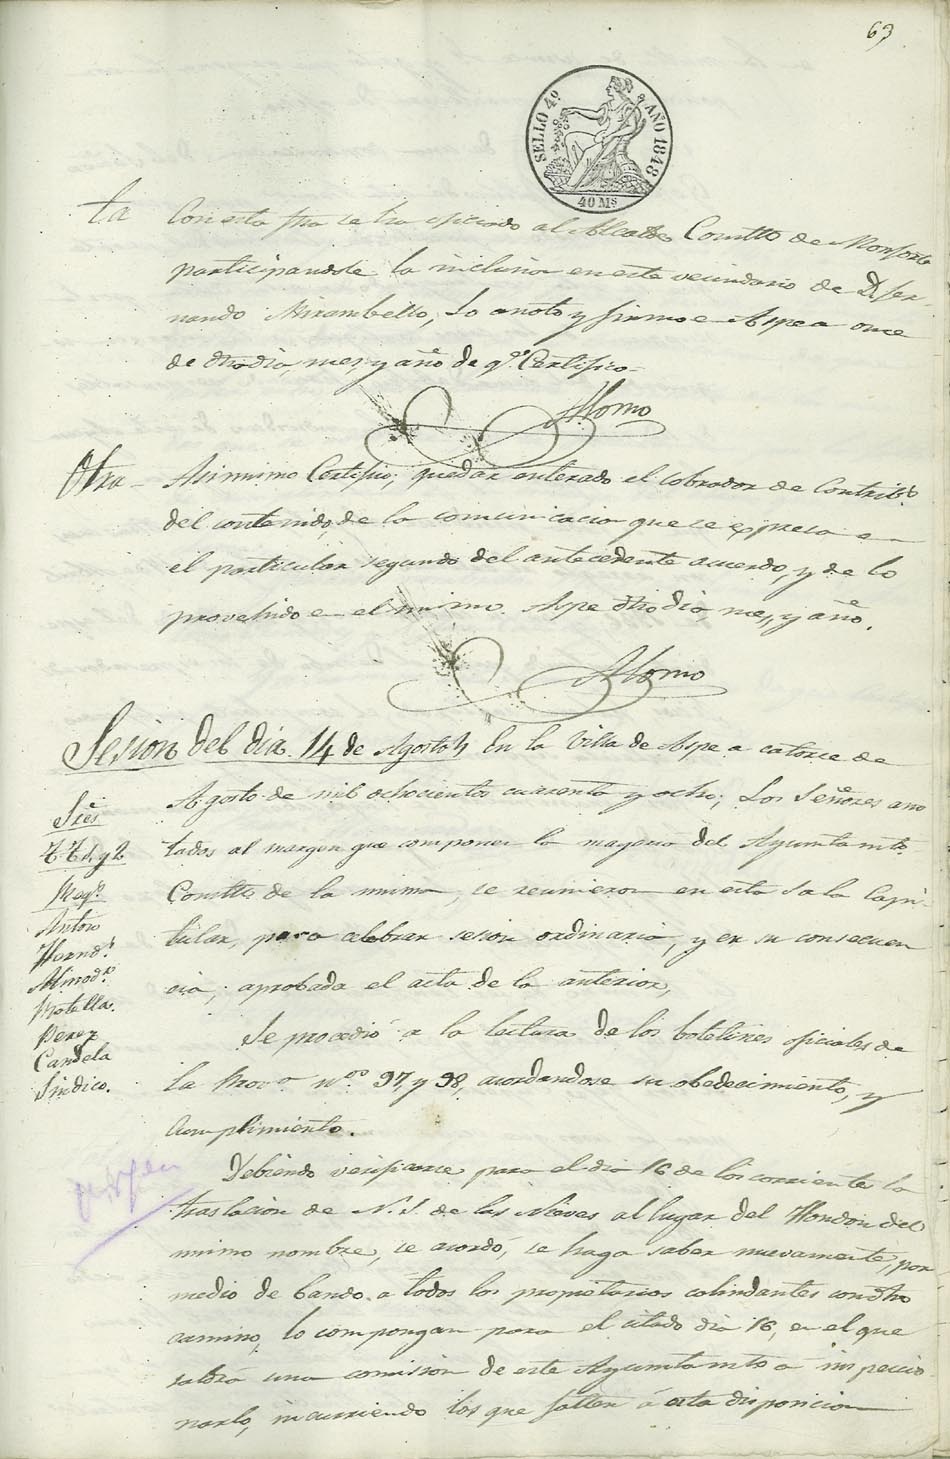 63
SELLO 4º AÑO 1848
40 Ms
ta Con esta fha se ha oficiado al Alcalde Constl de Monforte
participandole la inclusion en este vecindario de D. Fer-
nando Mirambello, lo anoto y firmo en Aspe a once
de dho dia, mes, y año de q.e Certifico=
Alorno
Otra - Asimismo Certifico; quedar enterado el cobrador de Contrib.s
del contenido de la comunicacion que se expresa en
el particular segundo del antecedente acuerdo, y de lo
provehido en el mismo. Aspe dho dia, mes, y año.
Alorno
Sesion del dia 14 de Agosto En la Villa de Aspe a catorce de
Agosto de mil ochocientos cuarenta y ocho; Los Señores ano
tados al margen que componen la mayoria del Ayuntamto
Constl de la misma, se reunieron en esta Sala Capi-
tular, para celebrar sesion ordinaria, y en su consecuen
cia, aprobada el acta de la anterior,
Sres
TT 1 y 2
Reg.s
Anton
Hernd.z
Almod.r
Botella.
Perez
Candela
Sindico.
Se procedió a la lectura de los boletines oficiales de
la Prov.a nºs 97, y 98, acordandose su obedecimiento, y
cumplimiento.
Debiendo verificarse para el dia 16 de los corrientes la
traslacion de N. S. de las Nieves al lugar del Hondon del
mismo nombre, se acordó, se haga saber nuevamente, por
medio de bando a todos los propietarios colindantes con dho
camino, lo compongan para el citado dia 16, en el que
saldrá una comision de este Ayuntamto a inspeccio
narlo, incurriendo los que falten á esta disposicion